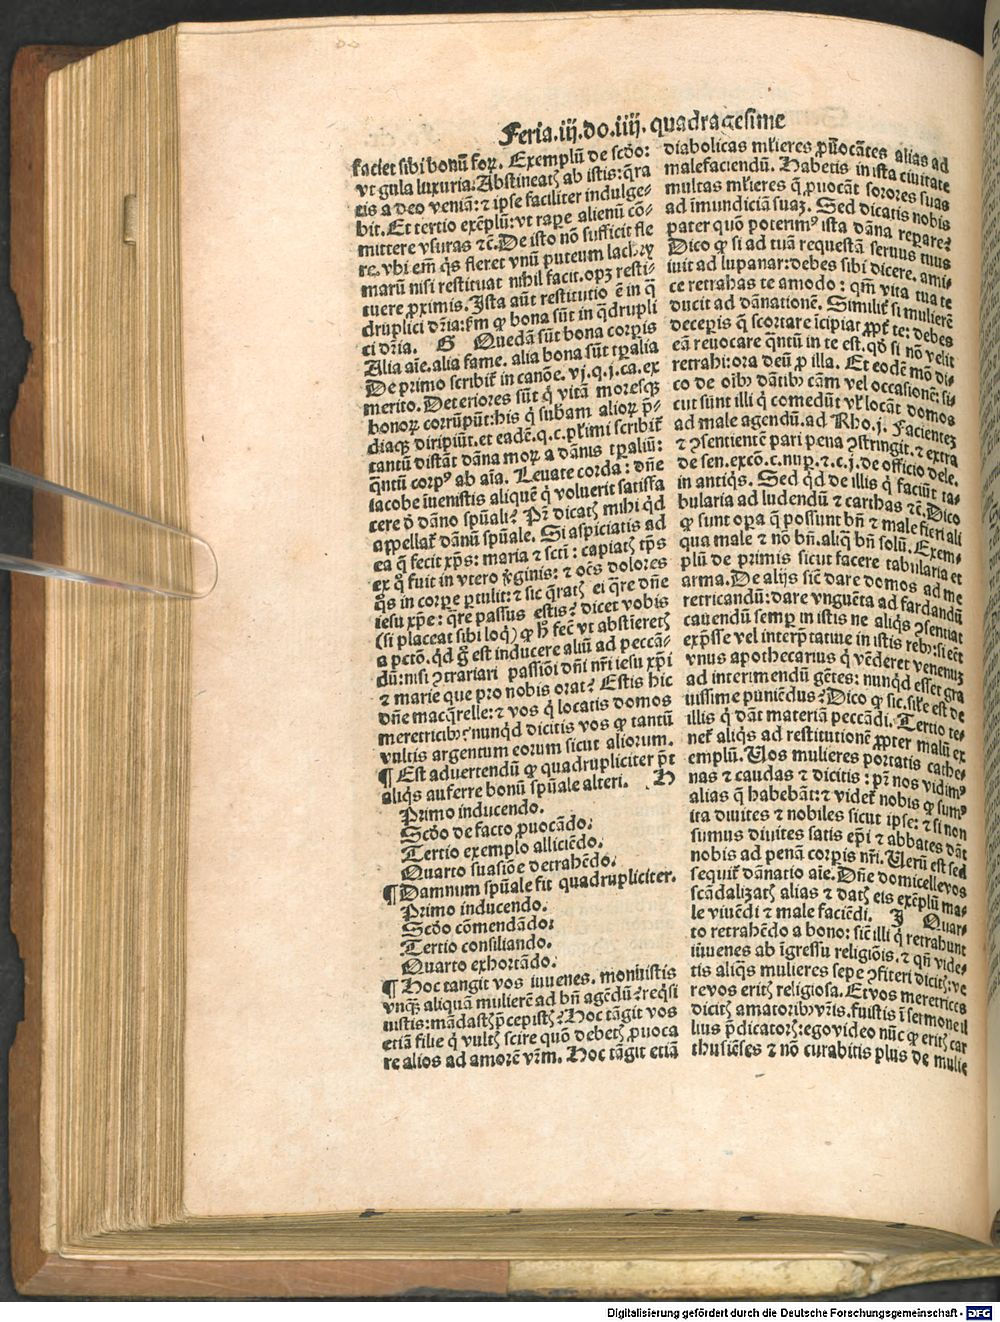 Feria.iij.do.iiij.quadragesime
faciet sibi bonū foꝝ. Exemplū de scḋo:
vt gula luxuria. Abstineatꝭ ab istis: q̄ra
tis a deo veniā: ⁊ ipse faciliter indulge-
bit. Et tertio exēplū: vt rape alienū cō-
mittere vsuras ⁊c̄. De isto nō sufficit fle
re. vbi em̄ q̇s fleret vnū puteum lachry
marū nisi restituat nihil facit. opꝫ resti-
tuere ꝓximis. Ista aūt restitutio ē in q̄
druplici dr̄ia: ẜm ꝙ bona sūt in q̄drupli
ci dr̄ia. G Quedā sūt bona corpis
Alia aīe. alia fame. alia bona sūt tꝑalia
De primo scribit̄ in canōe. vj. q. j. ca. ex
merito. Deteriores sūt q̇ vitā moresqꝫ
bonoꝝ corrūpūt: his q̇ subam alioꝝ p̄-
diaqꝫ diripiūt. et eadē. q. c. pr̄imi scribit̄
tantū distāt dāna moꝝ a dānis tꝑaliū:
q̄ntū corpꝰ ab aīa. Leuate corda: dn̄e
iacobe īuenistis aliquē q̇ voluerit satisfa
cere ō dāno spūali? Pr̄ dicatꝭ mihi q̇d
appellat̄ dānū spūale. Si aspiciatis ad
ea q̄ fecit xp̄s: maria ⁊ scti: capiatꝭ tp̄s
ex q̊ fuit in vtero ṽginis: ⁊ oēs dolores
q̊s in corpe ꝑtulit: ⁊ sic q̄ratꝭ ei q̄re dn̄e
iesu xp̄e: q̄re passus estis? dicet vobis
(si placeat sibi loq̇) ꝙ h̄ fec̄ vt abstīeretꝭ
a pctō. q̇d g̊ est inducere aliū ad peccā-
dū: nisi ꝯtrariari passiōi dn̄i nr̄i iesu xp̄i
⁊ marie que pro nobis orat? Estis hic
dn̄e macq̄relle: ⁊ vos q̇ locatis domos
meretricibꝰ: nunqd dicitis vos ꝙ tantū
vultis argentum eorum sicut aliorum.
¶ Est aduertendū ꝙ quadrupliciter p̄t
aliq̇s auferre bonū spūale alteri. H
Primo inducendo.
Scḋo de facto ꝓuocādo.
Tertio exemplo alliciēdo.
Quarto suasiōe detrahēdo.
¶ Damnum spūale fit quadrupliciter.
Primo inducendo.
Scḋo cōmendādo:
Tertio consiliando.
Quarto exhortādo.
¶ Hoc tangit vos iuuenes. monuistis
vnqꝫ aliquā mulierē ad bn̄ agēdū? req̇si
uistis: mādastꝭ p̄cepistꝭ? Hoc tāgit vos
etiā filie q̇ vultꝭ scire quō debetꝭ ꝓuoca
re alios ad amorē vr̄m. Hoc tāgit etiā
diabolicas ml̄ieres ꝓuocātes alias ad
malefaciendū. Habetis in ista ciuitate
multas ml̄ieres q̄ ꝓuocāt sorores suas
ad īmundiciā suaꝫ. Sed dicatis nobis
pater quo poterimꝰ ista dāna reꝑare?
Dico ꝙ si ad tuā requestā seruus tuus
iuit ad lupanar: debes sibi dicere. ami-
ce retrahas te amodo: qm̄ vita tua te
ducit ad dānationē. Similit̄ si mulierē
deceperis q̄ scortare īcipiat ꝓpt̄ te: debes
eā reuocare q̄ntū in te est. qḋ si nō velit
retrahi: ora deū ꝓ illa. Et eodē mō di-
co de oībꝰ dātibꝰ cām vel occasionē: si-
cut sunt illi q̇ comedūt vl̄ locāt domos
ad male agendū. ad Rho. j. Facientes
⁊ ꝯsentientē pari pena ꝯstringit. ⁊ extra
de sen. excō. c. nuꝑ. ⁊. c. j. de officio dele.
in antiq̇s. Sed qd de illis q̇ faciūt ta-
bularia ad ludendū ⁊ carthas ⁊c̄. Dico
ꝙ sunt oꝑa q̄ possunt bn̄ ⁊ male fieri ali
qua male ⁊ nō bn̄. aliq̄ bn̄ solū. Exem-
plū de primis sicut facere tabularia et
arma. De alijs sic̄ dare domos ad me
retricandū: dare vnguēta ad fardandū
cauendū semꝑ in istis ne aliq̇s ꝯsentiat
exp̄sse vel interp̄tatiue in istis rebꝰ: si eēt
vnus apothecarius q̇ vēderet venenuꝫ
ad interimendū gētes: nunqd esset gra
uissime puniēdus? Dico ꝙ sic. sil̄e est de
illis q̇ dāt materiā peccādi. Tertio te-
net̄ aliq̇s ad restitutionē ꝓpter malū ex
emplū. Uos mulieres portatis cathe-
nas ⁊ caudas ⁊ dicitis: pr̄ nos vidimꝰ
alias q̄ habebāt: ⁊ videt̄ nobis ꝙ sumꝰ
ita diuites ⁊ nobiles sicut ipse: ⁊ si non
sumus diuites satis ep̄i ⁊ abbates dāt
nobis ad penā corpis nr̄i. Uerū est sed
sequit̄ dānatio aīe. Dn̄e domicelle vos
scādalizatꝭ alias ⁊ datꝭ eis exēplū ma-
le viuēdi ⁊ male faciēdi. J Quar-
to retrahēdo a bono: sic̄ illi q̇ retrahunt
iuuenes ab īgressu religiōis. ⁊ qn̄ vide-
tis aliq̄s mulieres sepe ꝯfiteri dicitꝭ: ve
re vos eritꝭ religiosa. Et vos meretrices
dicitꝭ amatoribꝰ vr̄is. fuistis ī sermone il
lius p̄dicatorꝭ: ego video nūc ꝙ eritꝭ car
thusiēses ⁊ nō curabitis plus de mulie
Digitalisierung gefördert durch die Deutsche Forschungsgemeinschaft - DFG